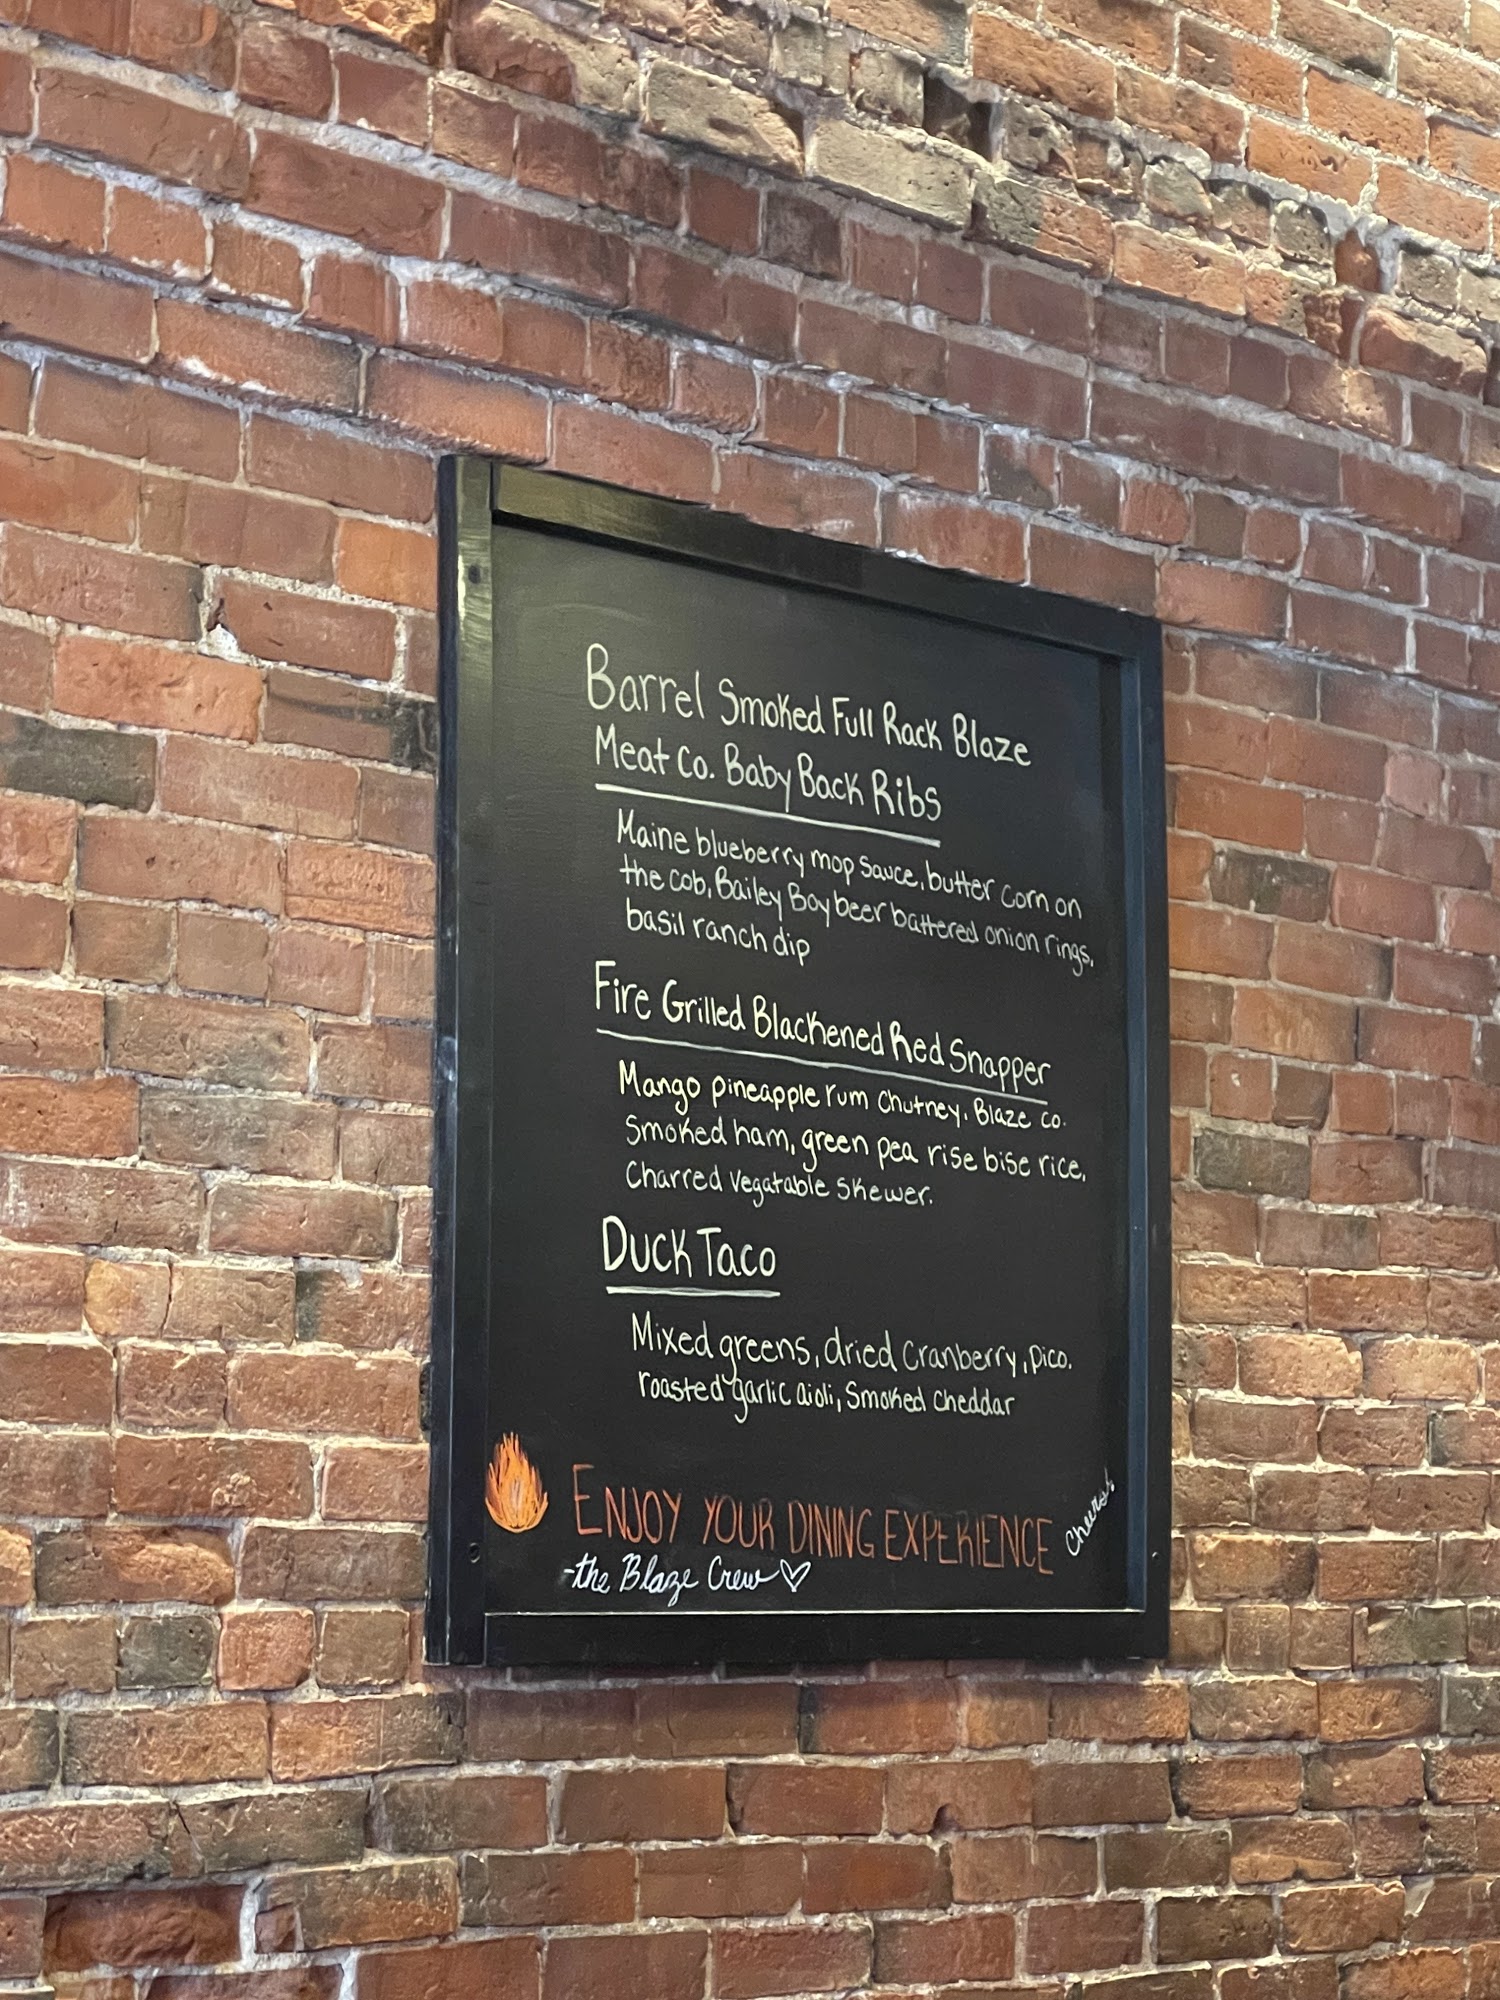 Barrel Smoked Full Rack Blaze
Meat Co. Baby Back Ribs
Maine blueberry mop sauce, butter corn on
the cob, Bailey Boy beer battered onion rings,
basil ranch dip
Fire Grilled Blackened Red Snapper
Mango pineapple rum chutney, Blaze co.
smoked ham, green pea rise bise rice,
Charred vegatable skewer.
Duck Taco
Mixed greens, dried cranberry, pico,
roasted garlic aioli, smoked cheddar
ENJOY YOUR DINING EXPERIENCE
Cheers!
-the Blaze Crew ♡